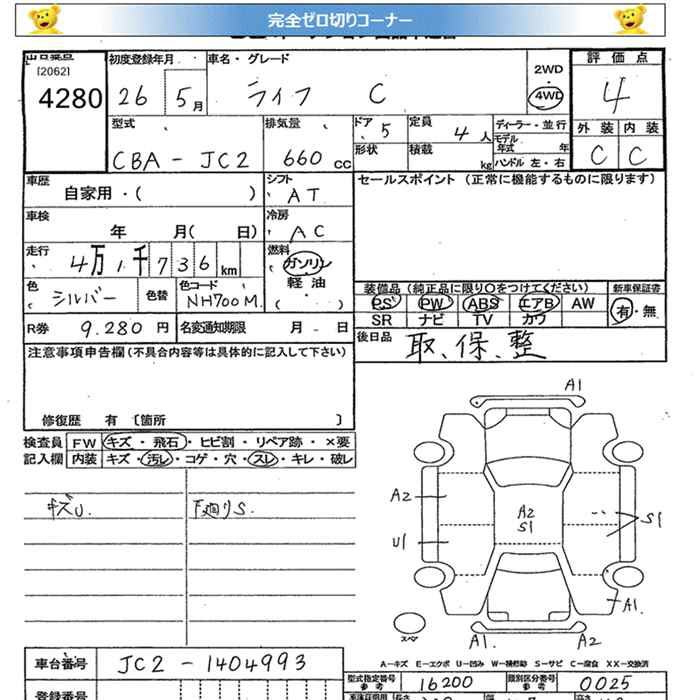 完全ゼロ切りコーナー
出品番号 初度登録年月 車名・グレード 2WD 評価点
[2062]
4280 26 5月 ライフ C 4WD 4
型式 排気量 ドア 5 定員 4人 ディーラー・並行 外装 内装
モデル年式 年
CBA-JC2 660cc 形状 積載 kg ハンドル 左・右 C C
車歴 シフト セールスポイント (正常に機能するものに限ります)
自家用・( ) AT
車検 冷房
年 月( 日) AC
走行 燃料
4万1千736km ガソリン
軽油
( )
色 色替 色コード 装備品 (純正品に限り○をつけてください) 新車保証書
シルバー NH700M. PS PW ABS エアB AW 有・無
SR ナビ TV カワ
R券 9.280円 名変通知期限 月 日 後日品 取、保、整
注意事項申告欄(不具合内容等は具体的に記入して下さい)
修復歴 有 〔箇所 〕
検査員 FW キズ・飛石・ヒビ割・リペア跡・×要
記入欄 内装 キズ・汚レ・コゲ・穴・スレ・キレ・破レ
キズU. 下廻りS.
A1
A2
A2
S1
S1
U1
A1.
スペア
A1. A2
A-キズ E-エクボ U-凹み W-補修跡 S-サビ C-腐食 XX-交換済
車台番号 JC2-1404993
型式指定番号 16200 類別区分番号 0025
参考 参考
登録番号